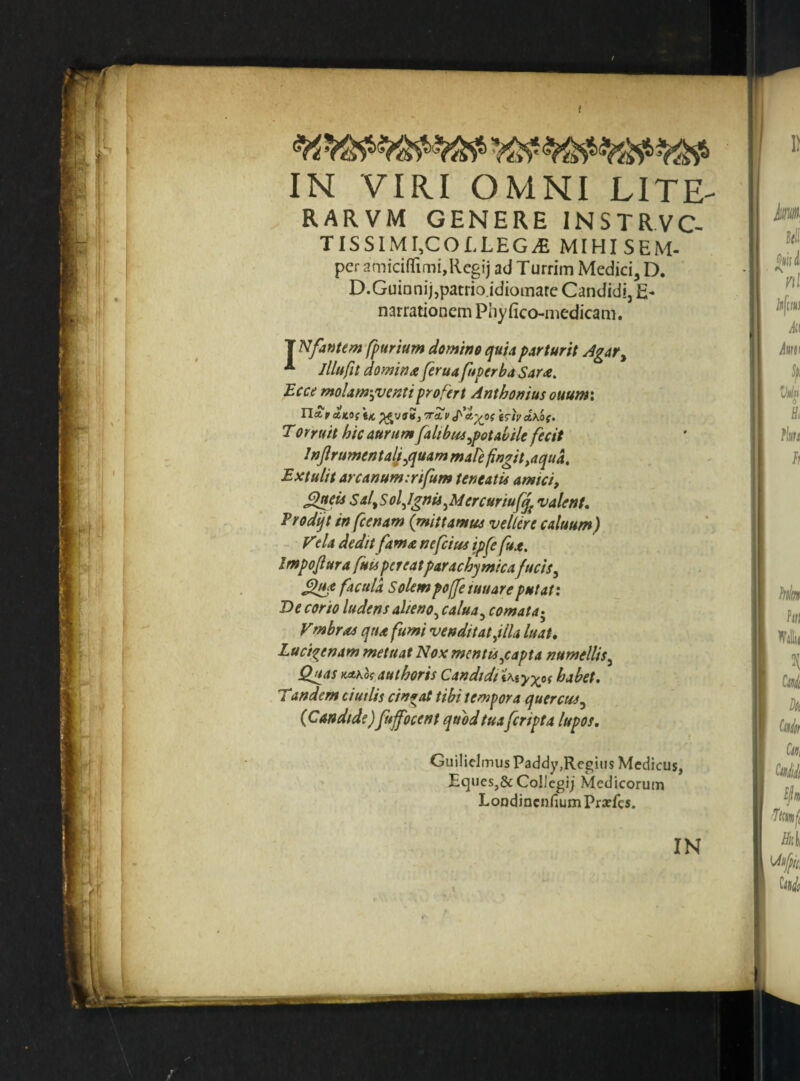 IN VIRI OMNI LITE-
RARVM GENERE INSTRVC-
TISSIMI,COLLEGÆ MIHI SEM-
per amiciſſimi,Regij ad Turrim Medici, D.
D.Guinnij,patrio idiomate Candidi, E-
narrationem Phyſico-medicam.
INfantem ſpurium domino quia parturit Agar,
Illuſit dominæ ſerua ſuperba Saræ.
Ecce molam;venti profert Anthonius ouum:
Πᾶν ἄκος ἐκ χρυσοῦ, πᾶν δ᾽ ἄχος ἐστὶν ἁλός.
Torruit hic aurum ſalibus,potabile fecit
Inſtrumentali,quam malè fingit,aquâ.
Extulit arcanum:riſum teneatis amici,
Queis Sal,Sol,Ignis,Mercuriuſq; valent.
Prodijt in ſcenam (mittamus vellere caluum)
Vela dedit famæ neſcius ipſe ſuæ.
Impoſtura ſuis pereat parachymica fucis,
Quæ faculâ Solem poſſe iuuare putat:
De corio ludens alieno, calua, comata;
Vmbras quæ fumi venditat,illa luat.
Lucigenam metuat Nox mentis,capta numellis,
Quas καλὸς authoris Candidi ἔλεγχος habet.
Tandem ciuilis cingat tibi tempora quercus,
(Candide) ſuffocent quòd tua ſcripta lupos.
Guilielmus Paddy,Regius Medicus,
Eques,& Collegij Medicorum
Londinenſium Præſes.
IN